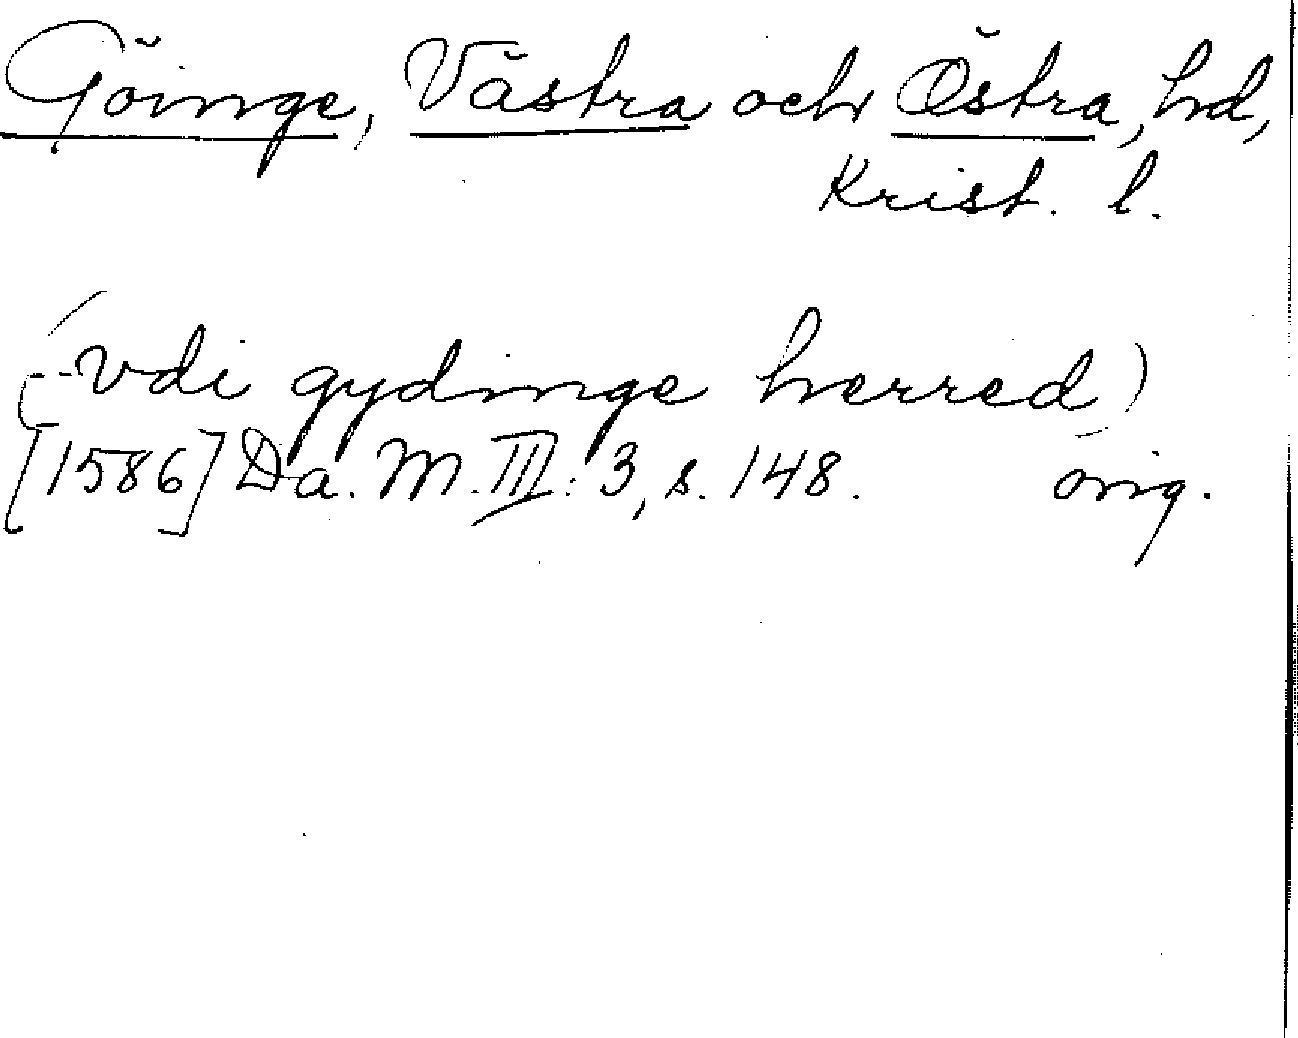 Göinge, Västra och Östra, hd,
Krist. l.
(-- vdi gydinge herred)
[1586] Da. M. III: 3, s. 148. orig.